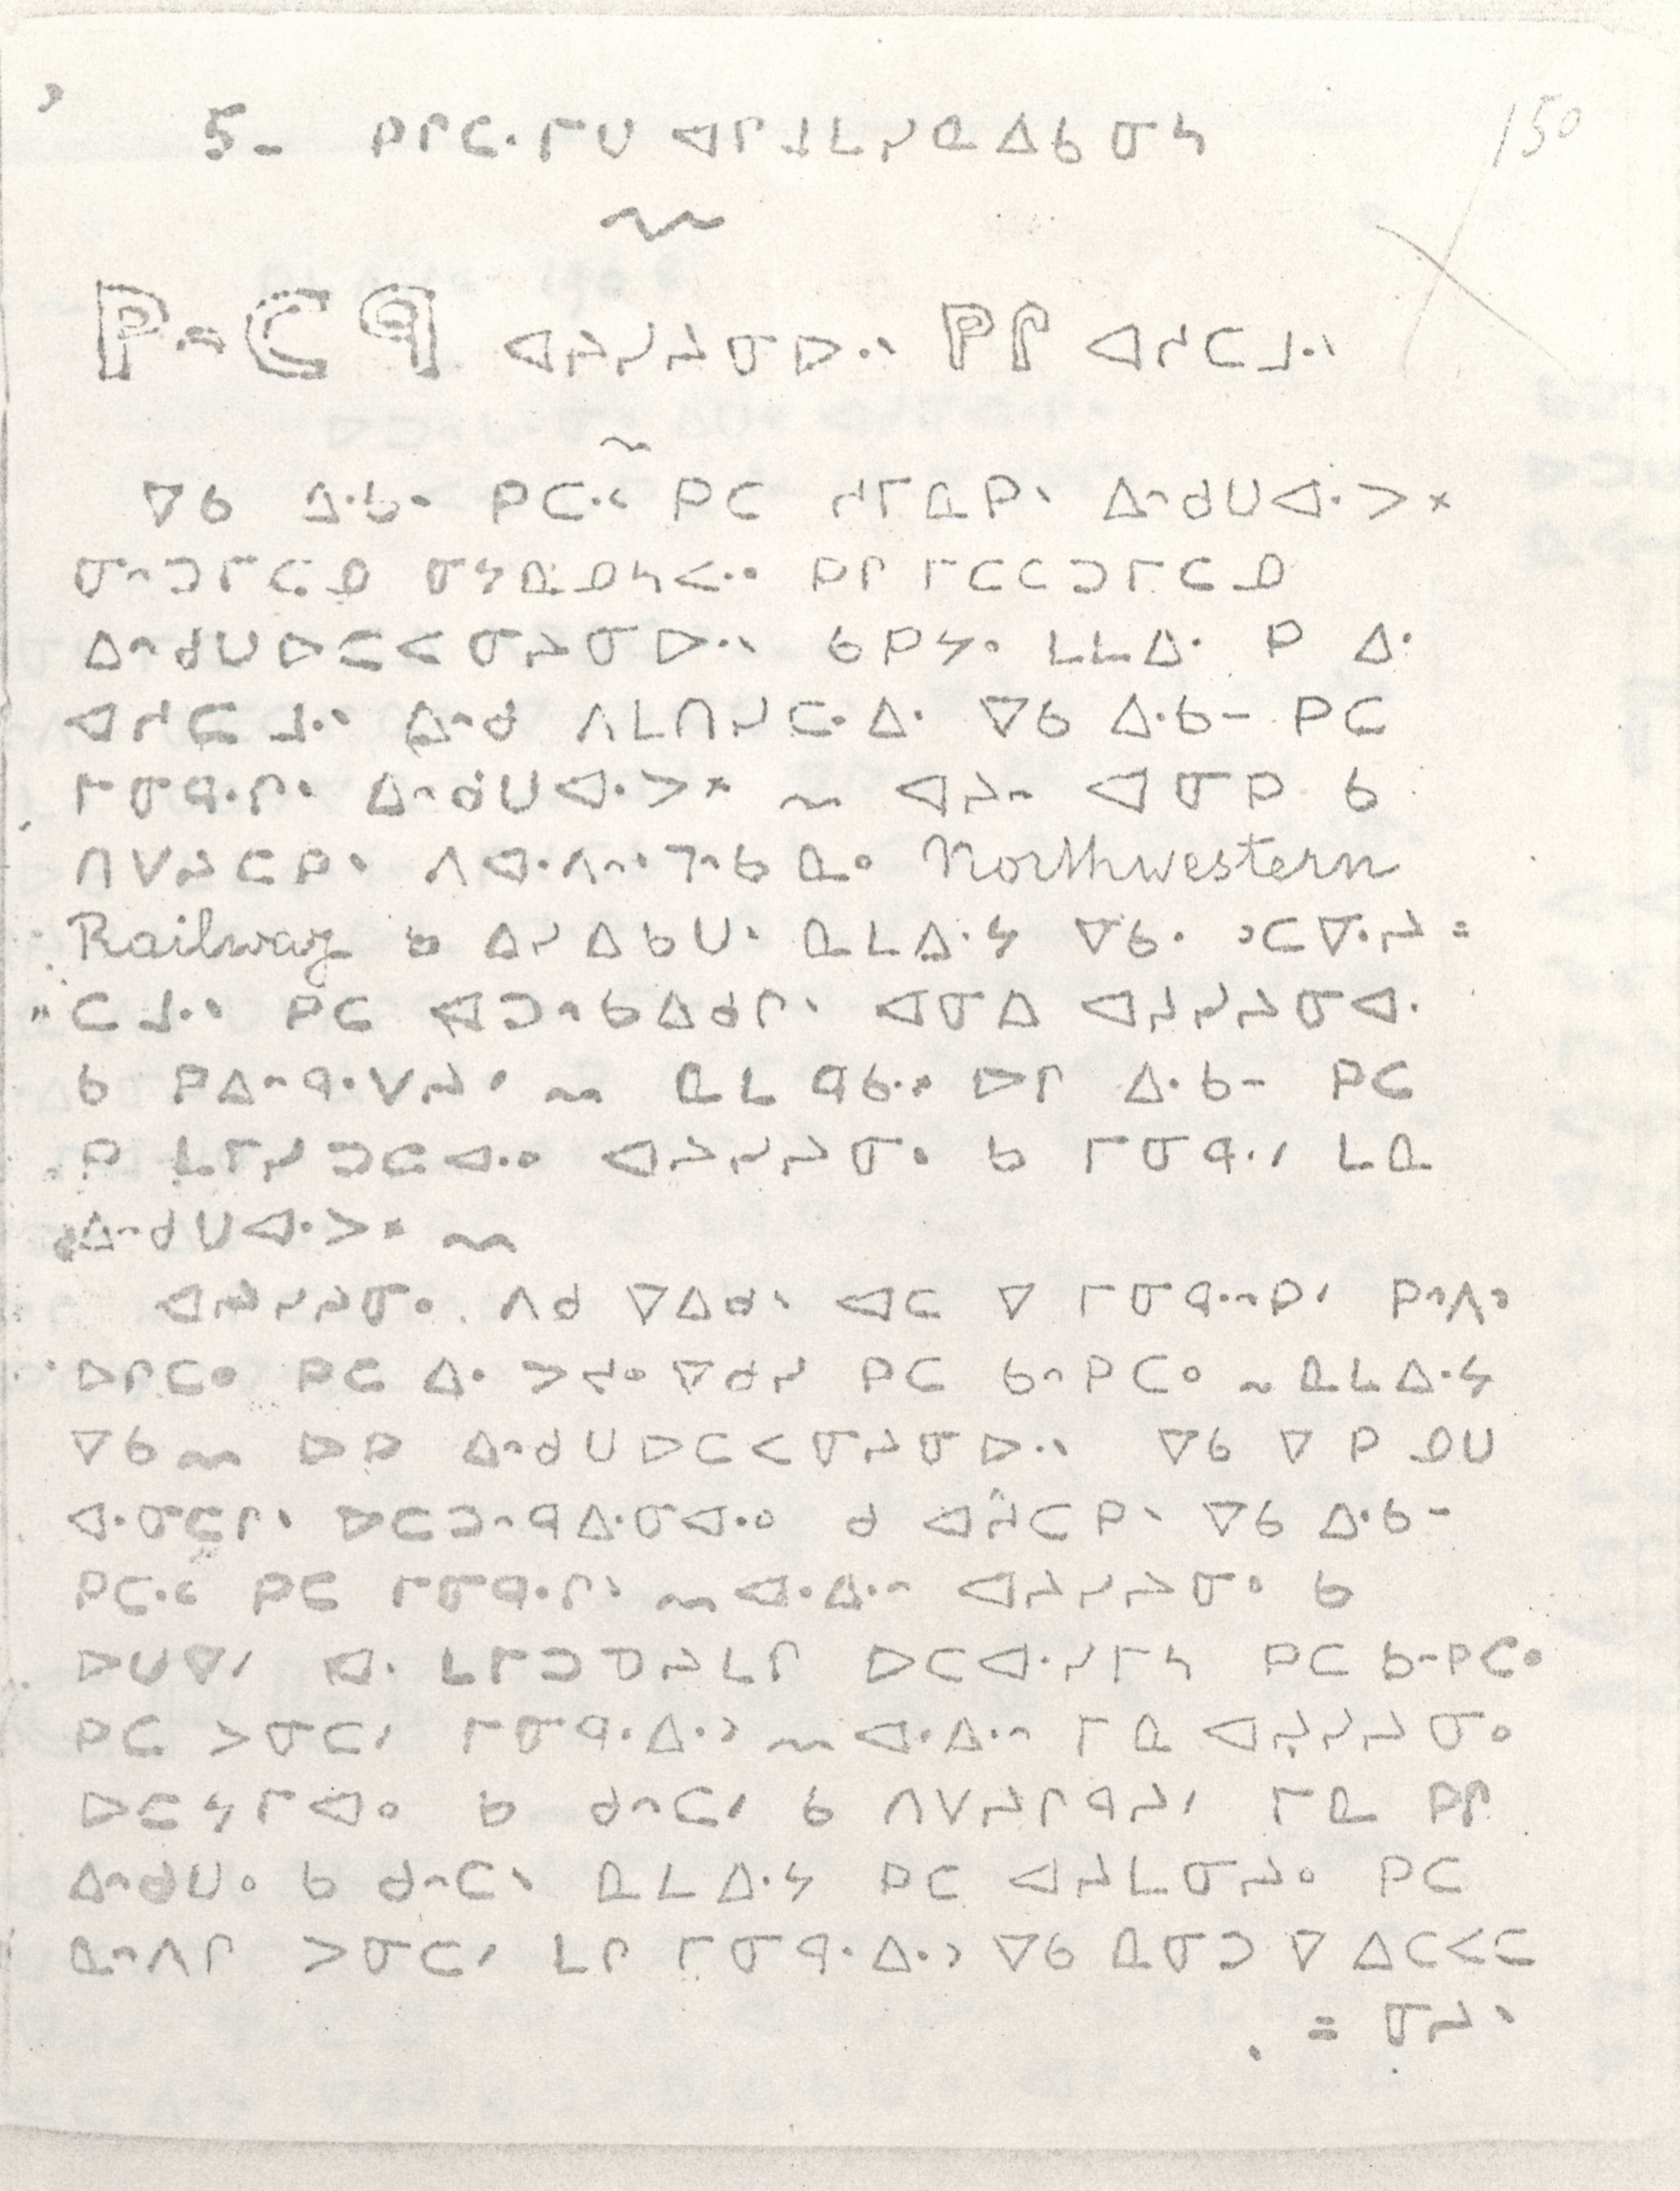 5- ᑭᒋᑕᐧᒥᑌ ᐊᒋᒧᒪᓯᓇᐃᑲᓂᓴ
150
ᑭᐢᑕᑫ ᐊᔨᓯᔨᓂᐅᐧᐠ ᑭᒋ ᐊᓱᑕᒧᐧᐠ
ᐁᑲ ᐃᐧᑲᐨ ᑭᑕᐧᐦ ᑭᑕ ᓱᒥᓇᑭᐠ ᐃᐢᑯᑌᐊᐧᐳᕽ
ᓂᐢᑐᒥᑕᓄ ᓂᔭᓇᓄᓴᐸᐧᐤ ᑭᒋ ᒥᑕᑕᑐᒥᑕᓄ
ᐃᐢᑯᑌᐅᑕᐸᓂᔨᓂᐅᐧᐠ ᑲᑭᔭᐤ ᒪᒪᐃᐧ ᑭ ᐃᐧ
ᐊᓱᑕᒧᐧᐠ ᐃᐢᑯ ᐱᒪᑎᓯᑕᐧᐃᐧ ᐁᑲ ᐃᐧᑲᐨ ᑭᑕ
ᒥᓂᑫᐧᒋᐠ ᐃᐢᑯᑌᐊᐧᐳᕽ ᐊᔨᐢ ᐊᓂᑭ ᑲ
ᑎᐯᔨᑕᑭᐠ ᐱᐊᐧᐱᐢᐠᒣᐢᑲᓇᐤ Northwestern
Railway ᑲ ᐃᓯᐃᑲᑌᐠ ᓇᒪᐃᐧᔭ ᐁᑲᐧ ᐣᑕᐁᐧᔨ=
"ᑕᒧᐧᐠ ᑭᑕ ᐊᑐᐢᑲᐃᑯᒋᐠ ᐊᓂᐃ ᐊᔨᓯᔨᓂᐊᐧ
ᑲ ᑭᐃᐢᑫᐧᐯᔨᐟ ᓇᒪ ᑫᑲᐧᕽ ᐅᒋ ᐃᐧᑲᐨ ᑭᑕ
ᑭ ᒪᒥᓯᑐᑕᐊᐧᐤ ᐊᔨᓯᔨᓂᐤ ᑲ ᒥᓂᑫᐧᐟ ᒪᓇ
ᐃᐢᑯᑌᐊᐧᐳᕽ
ᐊᔨᓯᔨᓂᐤ ᐱᑯ ᐁᐃᑯᐠ ᐊᑕ ᐁ ᒥᓂᑫᐧᐢᑭᐟ ᑭᐢᐱᐣ
ᐅᒋᑕᐤ ᑭᑕ ᐃᐧ ᐳᔪᐤ ᐁᑯᓯ ᑭᑕ ᑲᐢᑭᑕᐤ ᓇᒪᐃᐧᔭ
ᐁᑲ ᐅᑭ ᐃᐢᑯᑌᐅᑕᐸᓂᔨᓂᐅᐧᐠ ᐁᑲ ᐁ ᑭ ᓄᑌ
ᐊᐧᓂᑕᒋᐠ ᐅᑕᑐᐢᑫᐃᐧᓂᐊᐧᐤ ᑯ ᐊᓱᑕᑭᐠ ᐁᑲ ᐃᐧᑲᐨ
ᑭᑕᐧᐦ ᑭᑕ ᒥᓂᑫᐧᒋᐠ ᐊᐧᐃᐧᐢ ᐊᔨᓯᔨᓂᐤ ᑲ
ᐅᑌᐁᐟ ᐊᐧ ᒪᒥᑐᓀᔨᒪᒋ ᐅᑕᐊᐧᓯᒥᓴ ᑭᑕ ᑲᐢᑭᑕᐤ
ᑭᑕ ᐳᓂᑕᐟ ᒥᓂᑫᐧᐃᐧᐣ ᐊᐧᐃᐧᐢ ᒥᓇ ᐊᔨᓯᔨᓂᐤ
ᐅᑕᔭᒥᐊᐤ ᑲ ᑯᐢᑕᐟ ᑲ ᑎᐯᔨᒋᑫᔨᐟ ᒥᓇ ᑭᒋ
ᐃᐢᑯᑌᐤ ᑲ ᑯᐢᑕᐠ ᓇᒪᐃᐧᔭ ᑭᑕ ᐊᔨᒪᓂᔨᐤ ᑭᑕ
ᓇᐢᐱᒋ ᐳᓂᑕᐟ ᒪᒋ ᒥᓂᑫᐧᐃᐧᐣ ᐁᑲ ᓇᓂᑐ ᐁ ᐃᑕᐸᑕ
= ᓂᔨᐠ